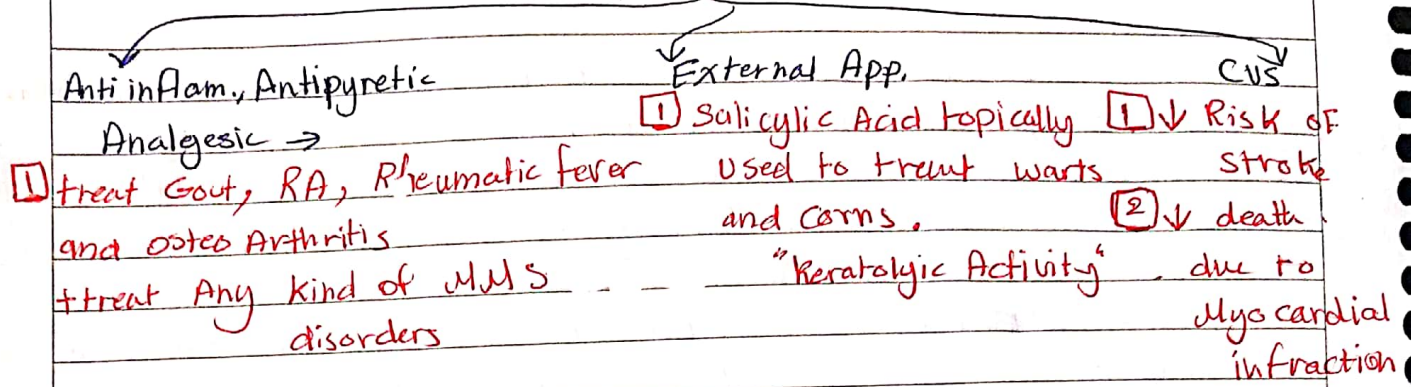 Anti inflam., Antipyretic
Analgesic →
1 treat Gout, RA, Rheumatic fever
and osteo Arthritis
+treat Any kind of MMS
disorders
External App.
1 Salicylic Acid topically
Used to treat warts
and Corns.
"Keratolyic Activity"
CVS
1 ↓ Risk of
Stroke
2 ↓ death
due to
Myocardial
infraction